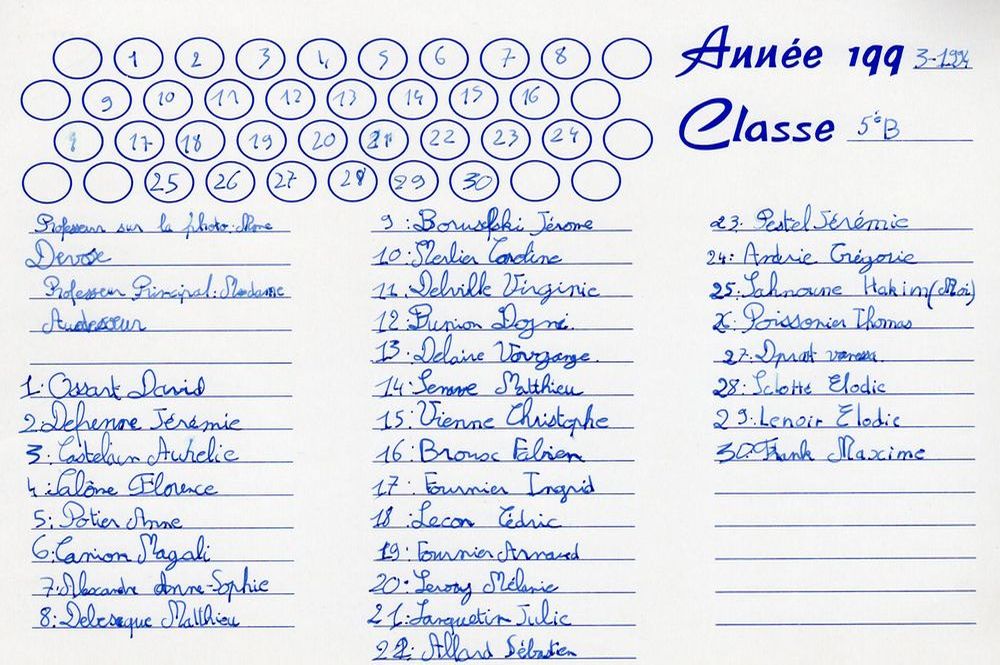 1 2 3 4 5 6 7 8
9 10 11 12 13 14 15 16
17 18 19 20 21 22 23 24
25 26 27 28 29 30
Année 1993-1994
Classe 5°B
Professeur sur la photo: Mme
Professeur Principal: Madame
1: Ossart David
2: Defrenne Jérémie
3: Castelain Aurélie
4: Salône Florence
5: Potier Anne
6: Camion Magali
7: Alexandre Anne-Sophie
8: Debesque Matthieu
9: Jérome
10: Merlier Caroline
11: Delville Virginie
12: Bunion
13: Delaire
14: Matthieu
15: Vienne Christophe
16: Fabien
17: Fournier Ingrid
18: Lecon Cédric
19: Fournier Arnaud
20: Leroy Mélanie
21: Larquetin Julie
22: Allard Sébastien
23: Pestel Jérémie
24: Andrie Grégorie
25: Sahnoune Hakim (Moi)
26: Poissonier Thomas
27: Duprat vanessa
28: Elodie
29: Lenoir Elodie
30: Frank Maxime